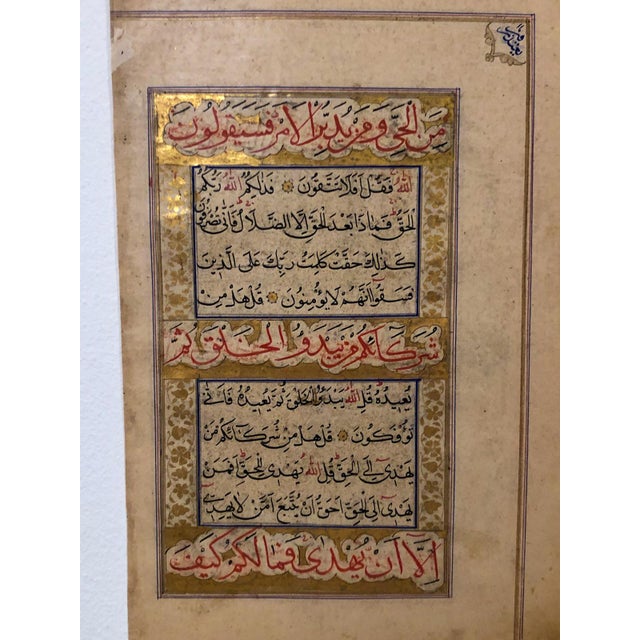 مِنَ الْحَيِّ وَمَنْ يُدَبِّرُ الْأَمْرَ فَسَيَقُولُونَ
اللهُ فَقُلْ أَفَلَا تَتَّقُونَ فَذَلِكُمُ اللهُ رَبُّكُمُ
الْحَقُّ فَمَاذَا بَعْدَ الْحَقِّ إِلَّا الضَّلَالُ فَأَنَّى تُصْرَفُونَ
كَذَلِكَ حَقَّتْ كَلِمَتُ رَبِّكَ عَلَى الَّذِينَ
فَسَقُوا أَنَّهُمْ لَا يُؤْمِنُونَ قُلْ هَلْ مِنْ
شُرَكَائِكُمْ مَنْ يَبْدَؤُ الْخَلْقَ ثُمَّ
يُعِيدُهُ قُلِ اللهُ يَبْدَؤُ الْخَلْقَ ثُمَّ يُعِيدُهُ فَأَنَّى
تُؤْفَكُونَ قُلْ هَلْ مِنْ شُرَكَائِكُمْ مَنْ
يَهْدِي إِلَى الْحَقِّ قُلِ اللهُ يَهْدِي لِلْحَقِّ أَفَمَنْ
يَهْدِي إِلَى الْحَقِّ أَحَقُّ أَنْ يُتَّبَعَ أَمَّنْ لَا يَهِدِّي
إِلَّا أَنْ يُهْدَى فَمَا لَكُمْ كَيْفَ